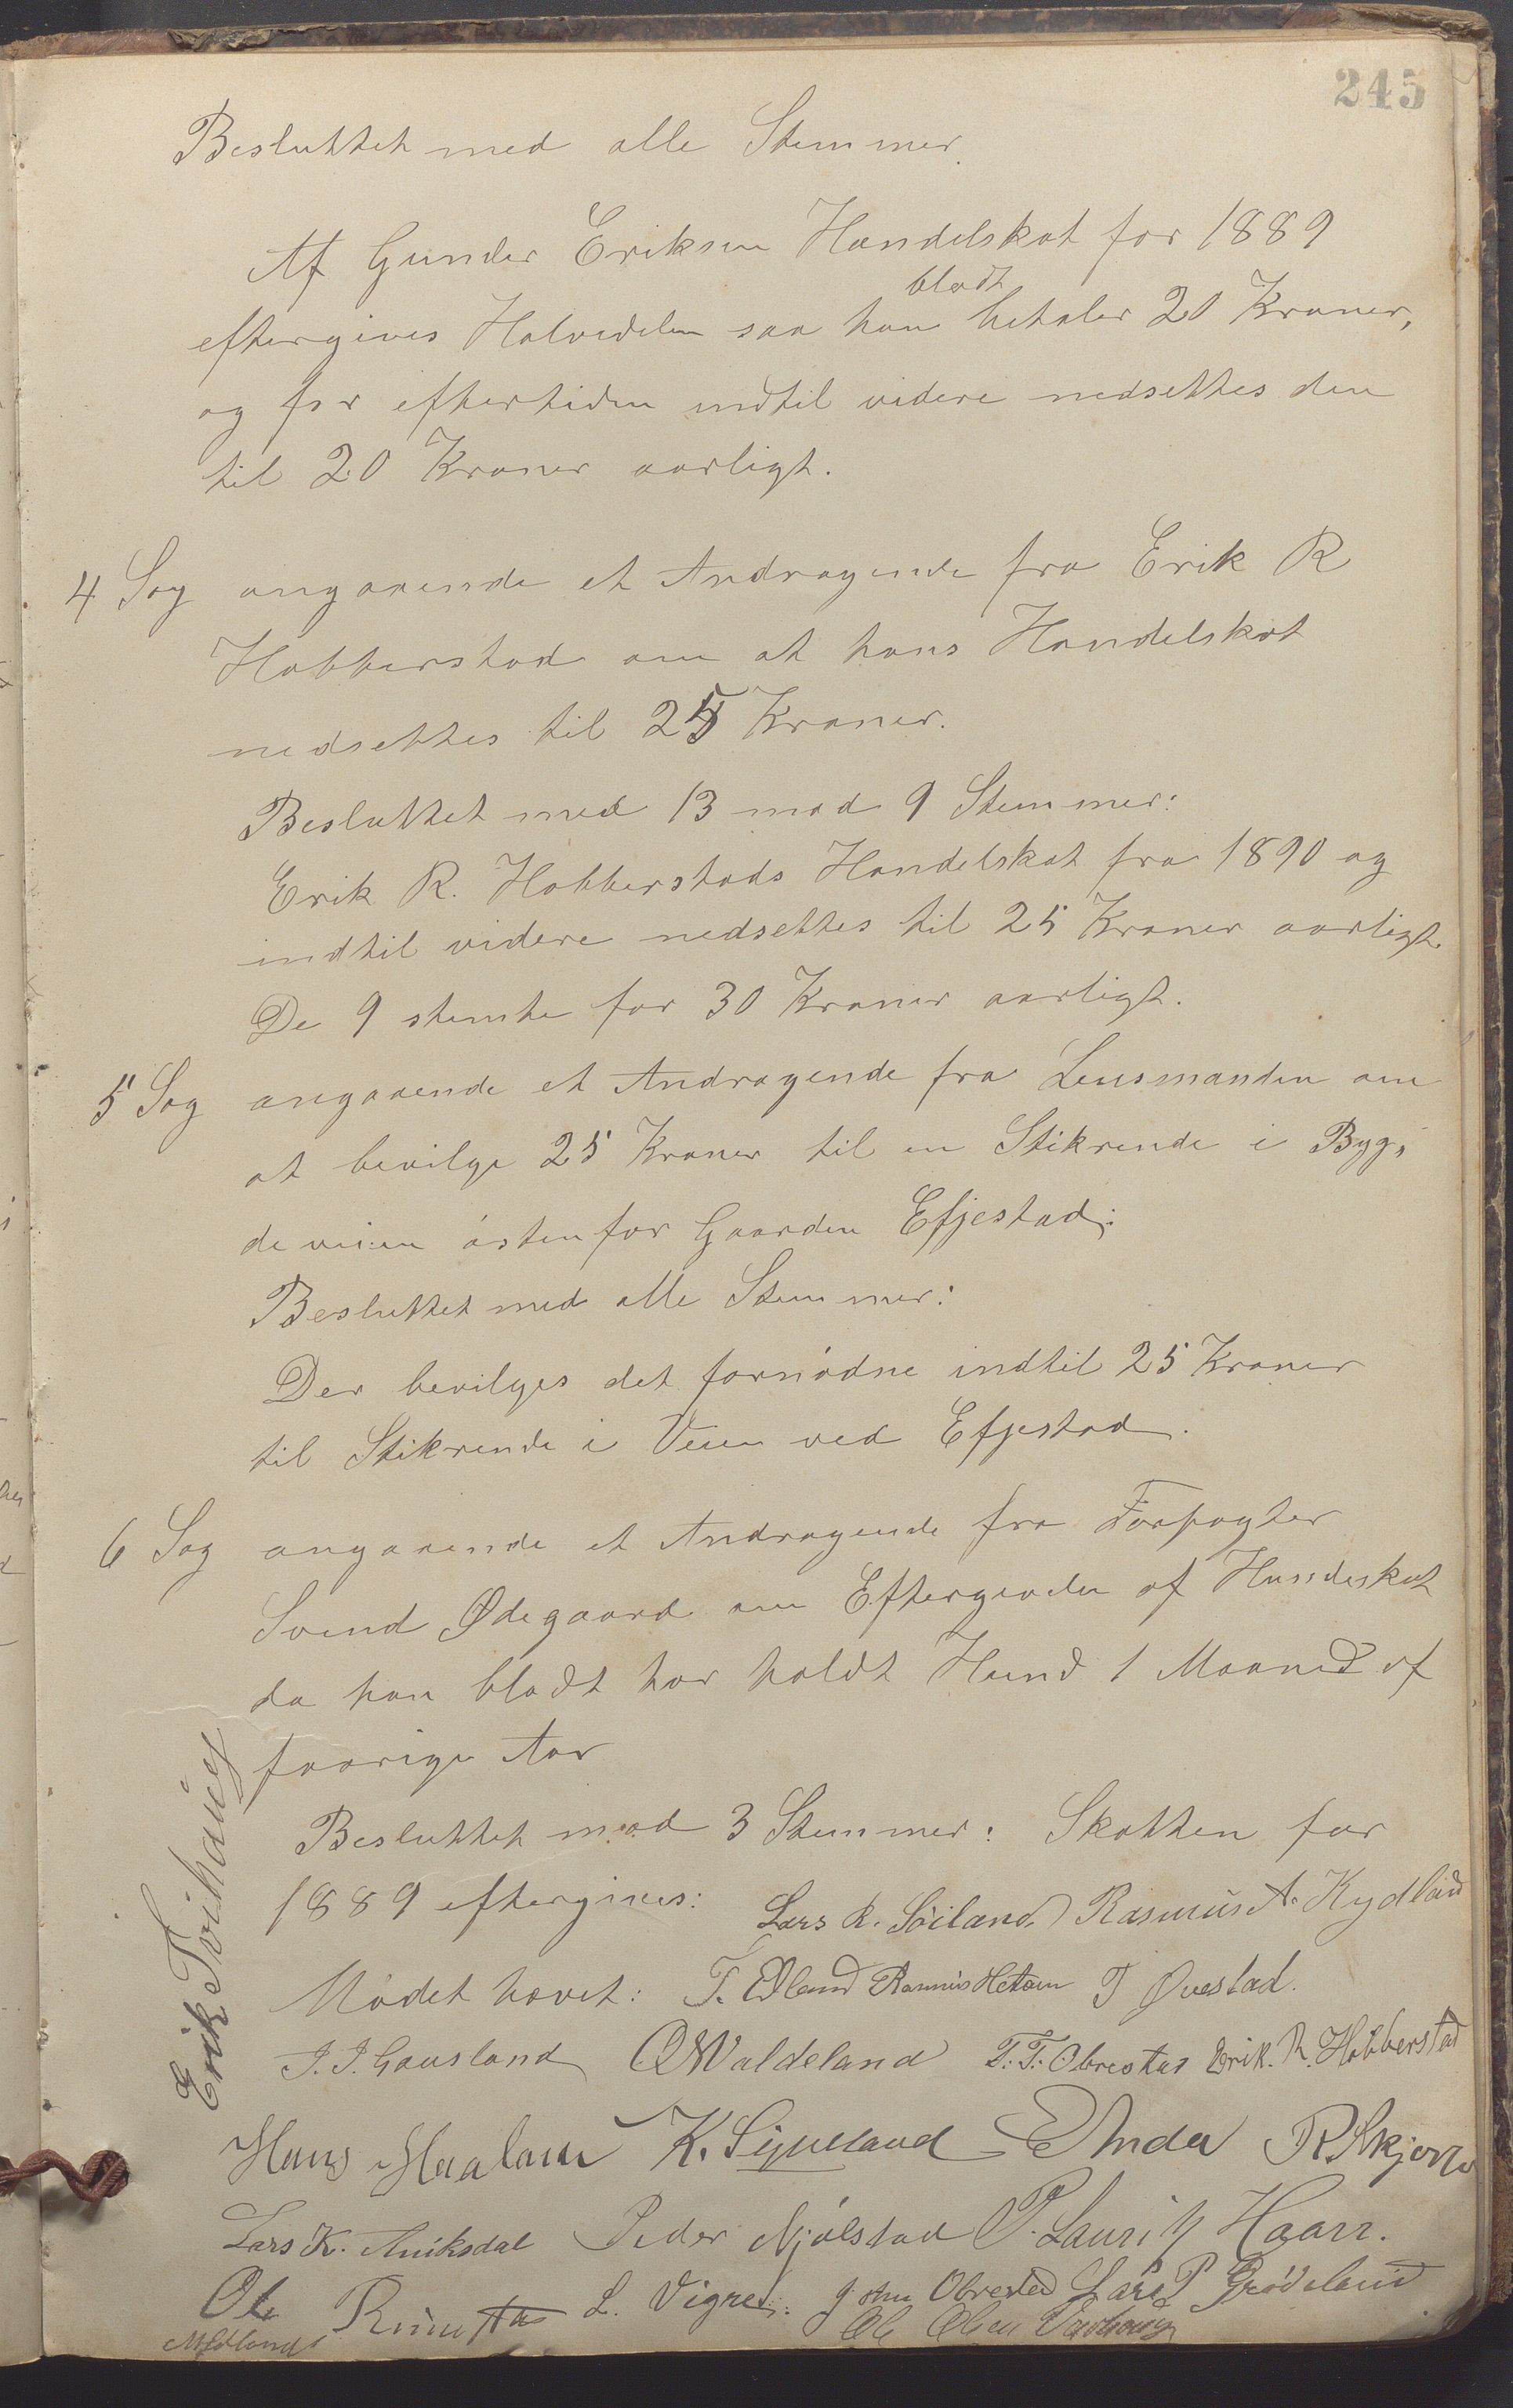 245
Besluttet med alle Stemmer.
Af Gunder Eriksen Handelskat for 1889
blodt
eftergives Halvedelen saa han betaler 20 Kroner,
og for eftertiden indtil videre nedsettes den
til 20 Kroner aarligt.
4 Sag angaaende et Andragende fra Erik R
Hobberstad om at hans Handelskat
nedsettes til 25 Kroner.
Besluttet med 13 mod 9 Stemmer:
Erik R. Hobberstads Handelskat fra 1890 og
indtil videre nedsettes til 25 Kroner aarligt.
De 9 stemte for 30 Kroner aarligt.
5 Sag angaaende et Andragende fra Lensmanden om
at bevilge 25 Kroner til en Stikrende i Byg,
deveien østenfor Gaarden Efjestad;
Besluttet med alle Stemmer:
Der bevilges det fornødne indtil 25 Kroner
til Stikrende i Veien ved Efjestad.
6 Sag angaaende et Andragende fra Forpagter
Svend Ødegaard om Eftergivelse af Hundeskat
da han blodt har holdt Hund 1 Maaned af
foorige Aar
Besluttet mod 3 Stemmer: Skatten for
1889 eftergives:
Lars R. Söiland Rasmus A. Kydland
Mødet hævet: T. Edland T Øvestad.
J. J. Gausland O Waldeland T. T. Obrestad Erik. R. Hobberstad
Hans Haaland K. Sigveland R Skjorre
Lars K. Aniksdal Peder Njålstad P. Lauritz Haarr.
Ole L. Vigre. John Obrestad Lars P Grödeland
M Edland Ole Olsen Varhoug
Erik Tvihaug